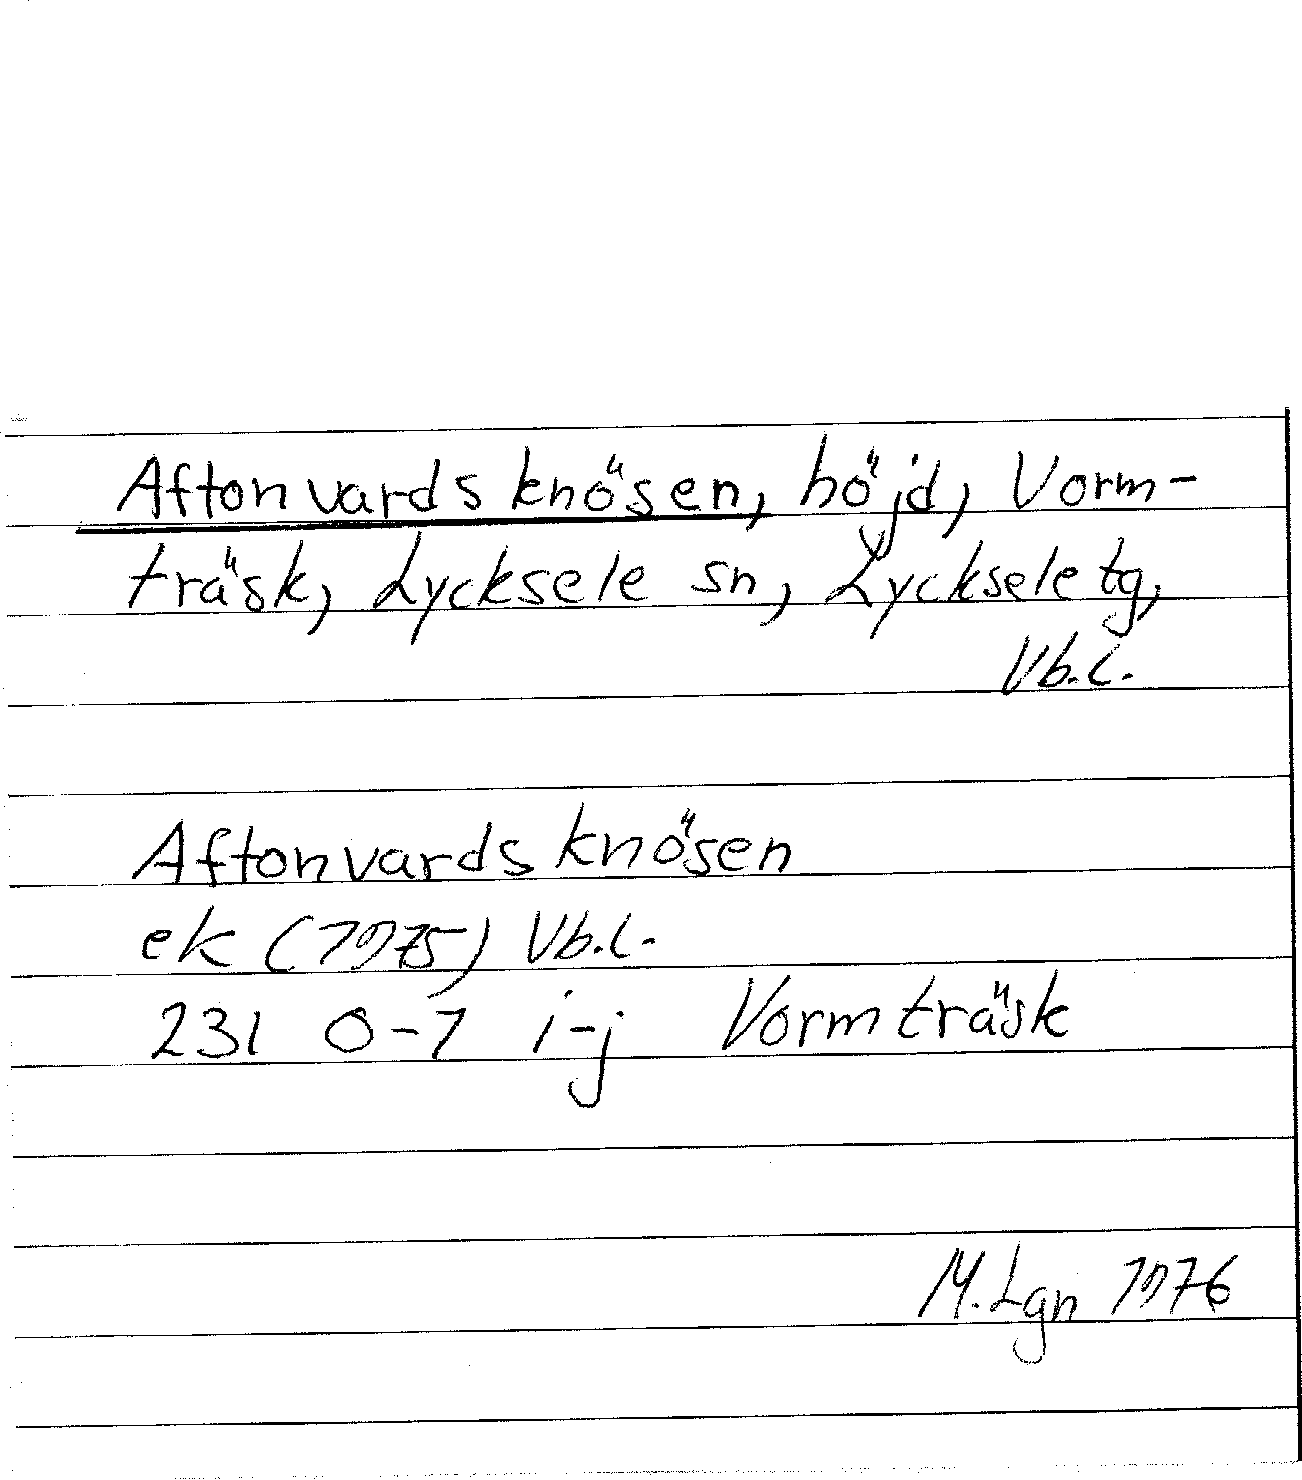 Aftonvardsknösen, höjd, Vorm-
träsk, Lycksele sn, Lycksele tg,
Vb.l.
Aftonvardsknösen
ek (1975) Vb.l.
231 0-1 i-j Vormträsk
M.Lgn 1976